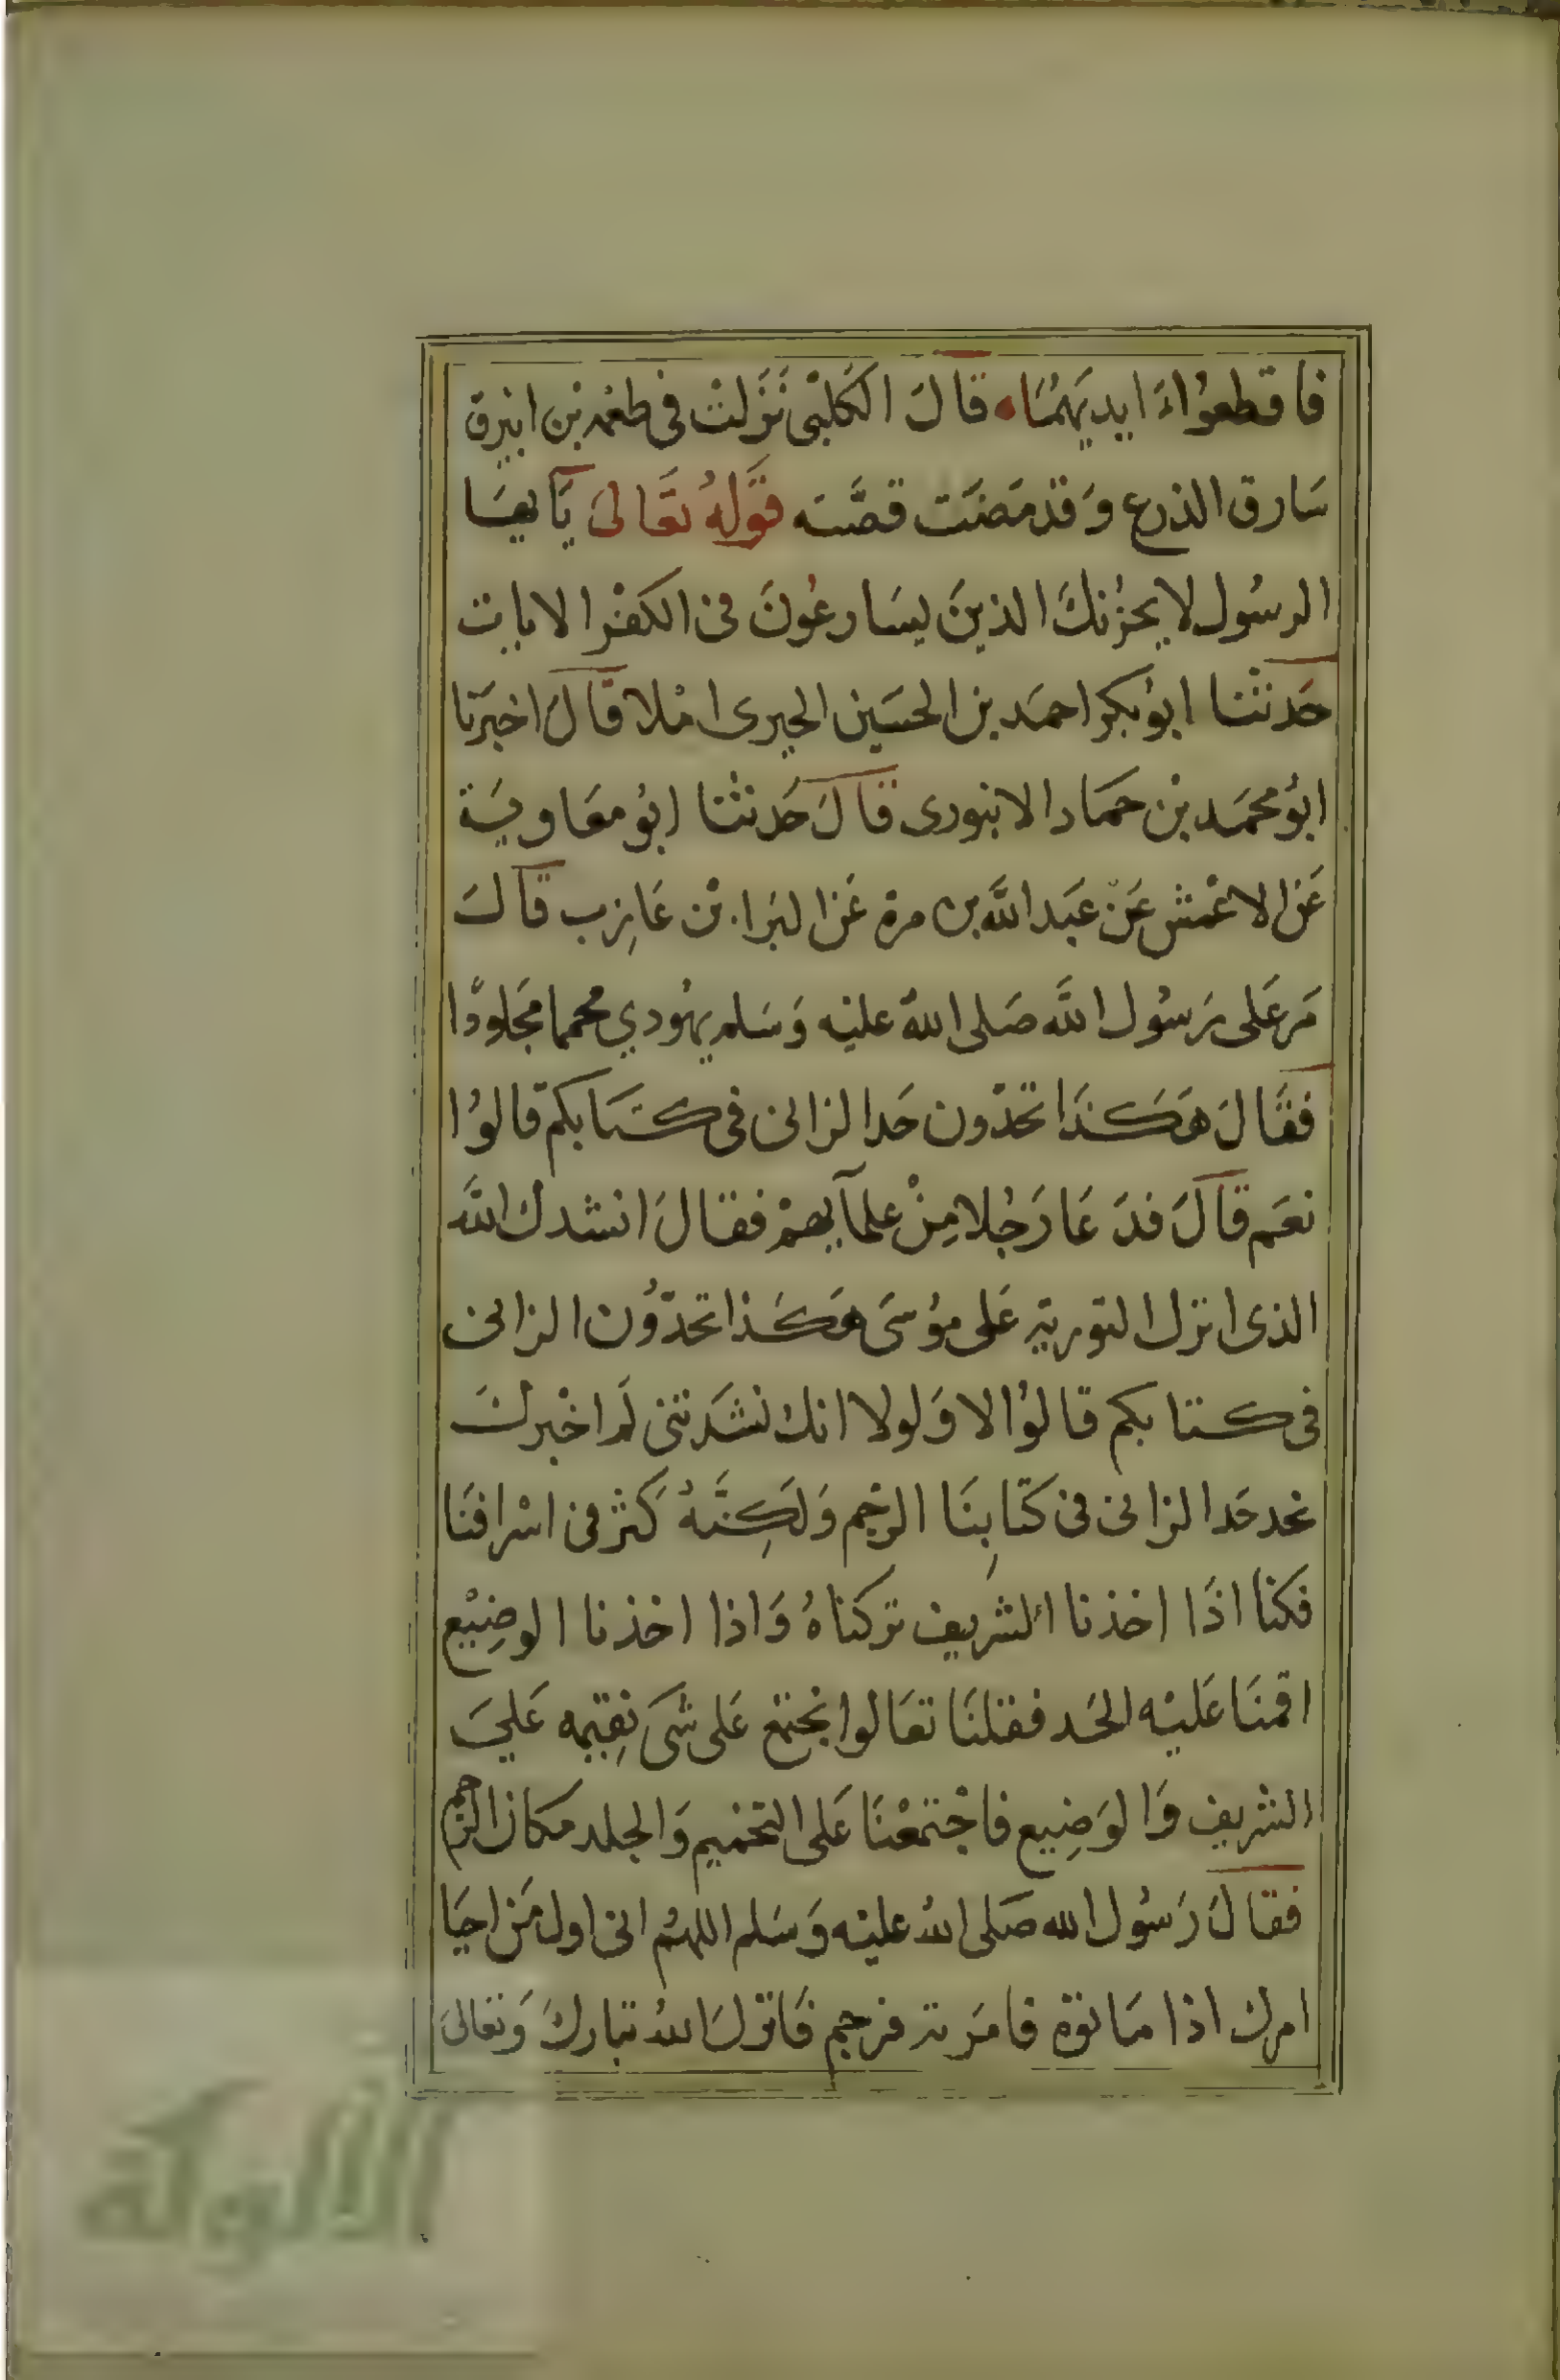 فاقطعوا ايديهما قال الكلبى نزلت فى طعمه بن ابيرق
سارق الذرع وقد مضت قصته قوله تعالى يايها
الرسول لا يحزنك الذين يسارعون فى الكفر الايات
حدثنا ابو بكر احمد بن الحسين الحيرى املا قال اخبرنا
ابو محمد بن حماد الابنوردى قال حدثنا ابو معاوية
عن الاعمش عن عبد الله بن مرة عن البرا بن عازب قال
مر على رسول الله صلى الله عليه وسلم يهودي محمما مجلودا
فقال هكذا تحدون حد الزانى فى كتابكم قالوا
نعم قال فدعا رجلا من علمآيهم فقال انشدك الله
الذى انزل التورية على موسى هكذا تحدون الزانى
فى كتابكم قالوا لا ولولا انك نشدتنى لم اخبرك
نحد حد الزانى فى كتابنا الرجم ولكنه كثر فى اشرافنا
فكنا اذا اخذنا الشريف تركناه واذا اخذنا الوضيع
اقمنا عليه الحد فقلنا تعالوا نجتمع على شى نقيمه على
الشريف والوضيع فاجتمعنا على التحميم والجلد مكان الرجم
فقال رسول الله صلى الله عليه وسلم اللهم انى اول من احيا
امرك اذا ماتوه فامر به فرجم فانزل الله تبارك وتعالى
الألوكة